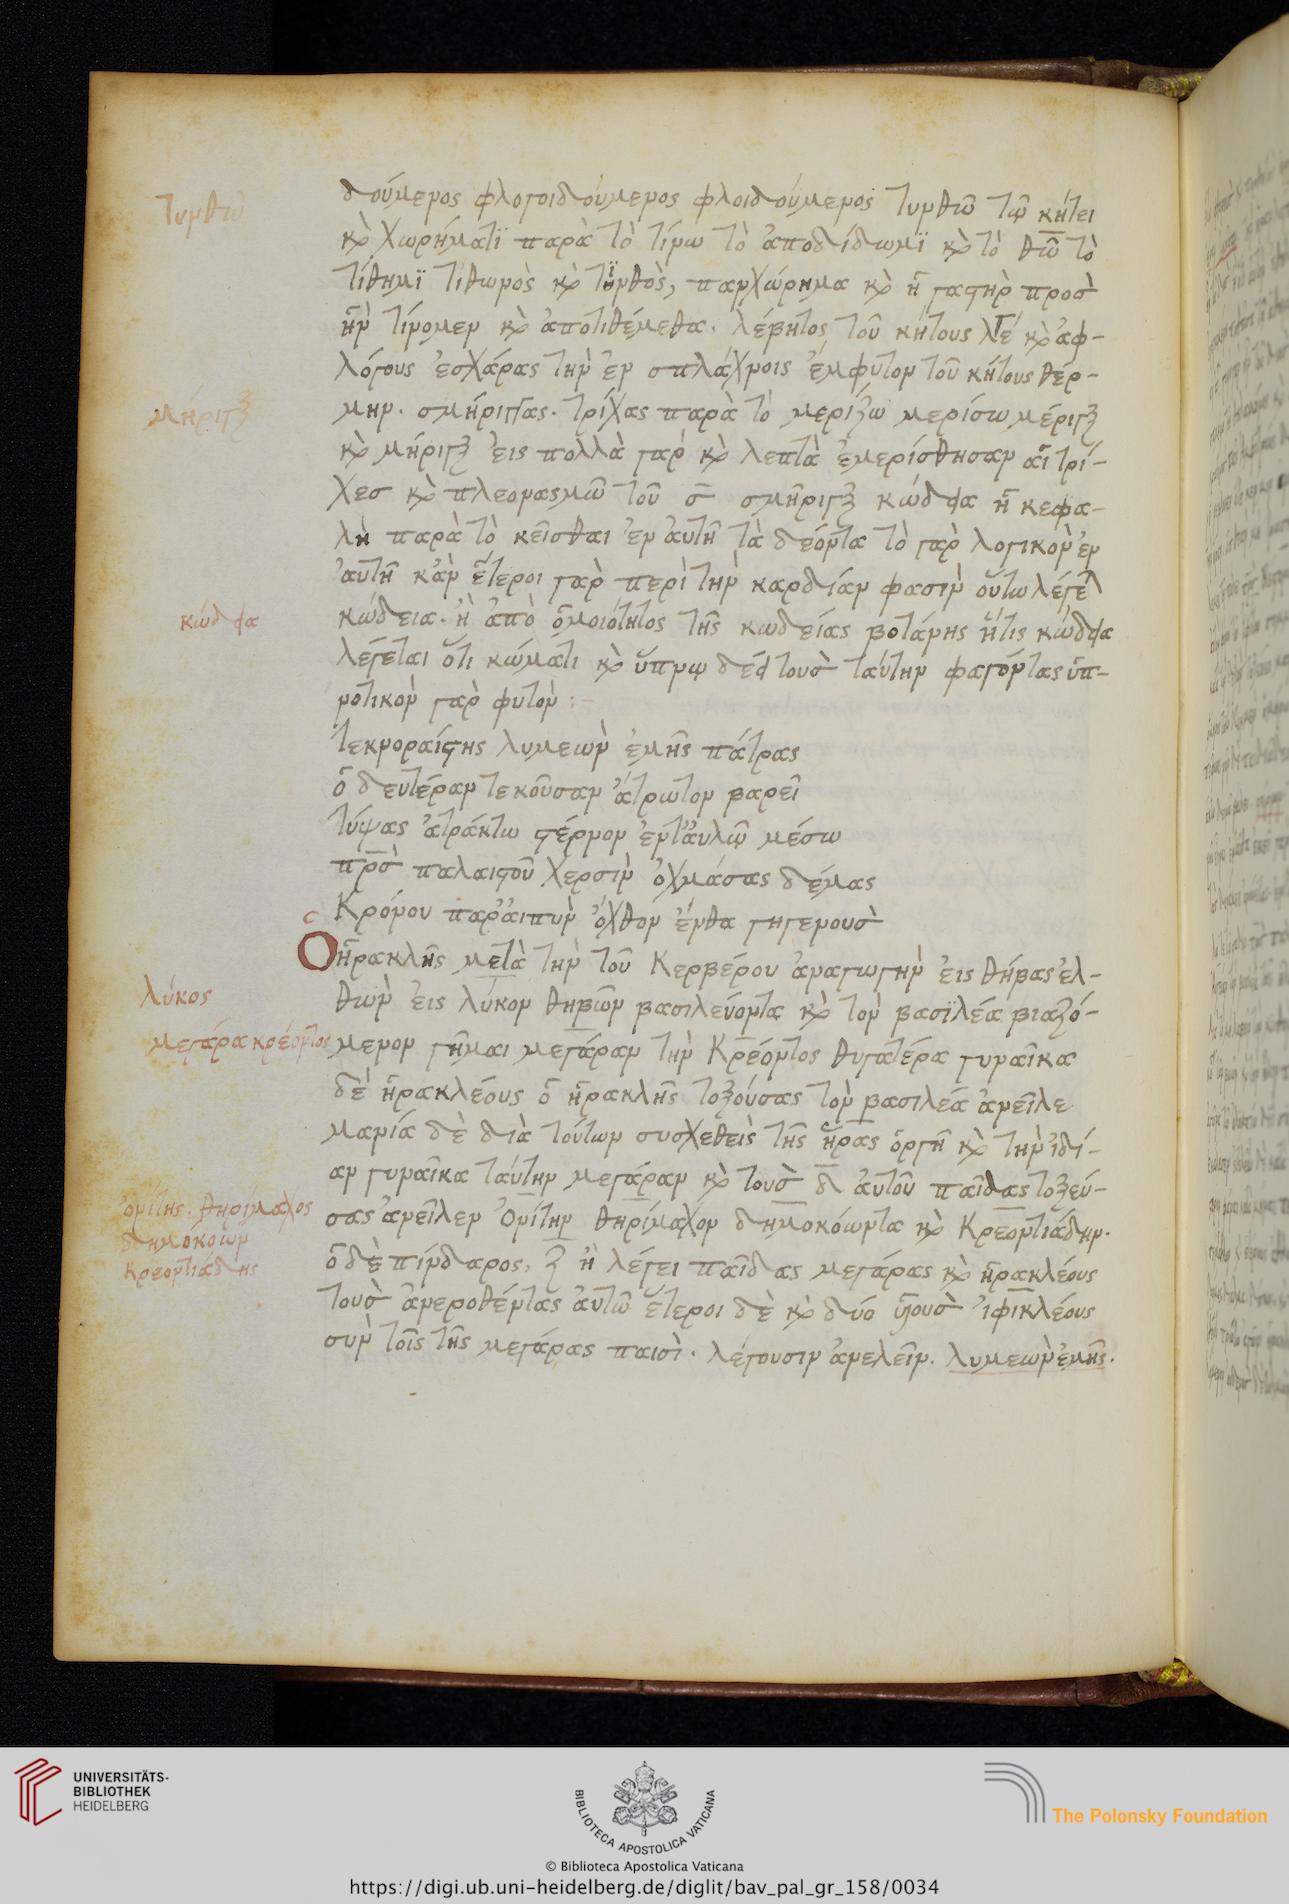 Τυνθῶ
δούμενος φλογοιδούμενος φλοιδούμενος Τυνθῶ τῷ κήτει
κὶ χωνήματϊ παρὰ τὸ τίνω τὸ ἀποδίδωμϊ κὶ τὸ θῶ τὸ
τίθημϊ τιθωνὸς κὶ τϊνθὸς, πανχώνημα κὶ ἡ γαστὴρ προσ
ἣν τίνομεν κὶ ἀποτιθέμεθα. λέβητος τοῦ κήτους λέγε κὶ ἀφ-
λόγους ἐσχάρας τὴν ἐν σπλάχνοις ἔμφυτον τοῦ κήτους θέρ-
μήριγξ
μην. σμήριγγας. τρίχας παρὰ τὸ μερίζω μερίσω μέριγξ
κὶ μήριγξ εἰς πολλὰ γὰρ κὶ λεπτὰ ἐμερίσθησαν αἱ τρί-
χεσ κὶ πλεονασμῶ τοῦ σ σμῆριγξ κώδεια ἡ κεφα-
λὴ παρὰ τὸ κεῖσθαι ἐν αὐτῆ τὰ δεόντα τὸ γὰρ λογικὸν ἐν
αὐτῆ κἂν ἕτεροι γὰρ περὶ τὴν καρδίαν φασὶν οὕτω λέγε
κώδεια
κώδεια. ἢ ἀπὸ ὁμοιότητος τῆς κωδείας βοτάνης ἥτις κώδεια
λέγεται ὅτι κώματι κὶ ὕπνῳ δεῖ τοὺσ ταύτην φαγόντας ὑπ-
νοτικὸν γὰρ φυτὸν :
τεκνοραίστης λυμεωὴν ἐμῆς πάτρας
ὁ δευτέραν τεκοῦσαν ἄτρωτον βαρεῖ
τύψας ἀτράκτω στέρνον ἔντ' αὐλῶ μέσω
πρὸσ παλαιστοῦ χερσὶν ὀχμάσας δέμας
Κρόνου παρ' αἰπὺν ὄχθον ἔνθα γηγενοῦσ
Ὁ ἡρακλῆς μετὰ τὴν τοῦ Κερβέρου ἀναγωγὴν εἰς θήβας ἐλ-
λύκος
θὼν εἰς λύκον θηβῶν βασιλεύοντα κὶ τὸν βασϊλέα βιαζό-
μεγάρα κρέοντος
μενον γῆμαι μεγάραν τὴν Κρέοντος θυγατέρα γυναῖκα
δὲ ἡρακλέους ὁ ἡρακλῆς τοξούσας τὸν βασιλέα ἀνεῖλε
μανία δὲ διὰ τούτων συσχεθεὶς τῆς ἥρας ὀργῆ κὶ τὴν ἰδί-
αν γυναῖκα ταύτην μεγάραν κὶ τοὺσ δ αὐτοῦ παῖδας τοξεύ-
ὀνίτης. θηρίμαχος
σας ἀνεῖλεν Ὀνίτην θηρίμαχον δημοκόωντα κὶ Κρεοντιάδην.
δημοκόων
Κρεοντιάδης
ὁ δὲ πίνδαρος, ζ ἢ λέγει παῖδας μεγάρας κὶ ἡρακλέους
τοὺσ ἀνεροθέντας αὐτῶ ἕτεροι δὲ κὶ δύο υἱοὺσ ἰφικλέους
σὺν τοῖς τῆς μεγάρας παισὶ. λέγουσιν ἀνελεῖν. λυμεὼν ἐμῆς.
UNIVERSITÄTS-
BIBLIOTHEK
HEIDELBERG
BIBLIOTECA APOSTOLICA VATICANA
The Polonsky Foundation
© Biblioteca Apostolica Vaticana
https://digi.ub.uni-heidelberg.de/diglit/bav_pal_gr_158/0034